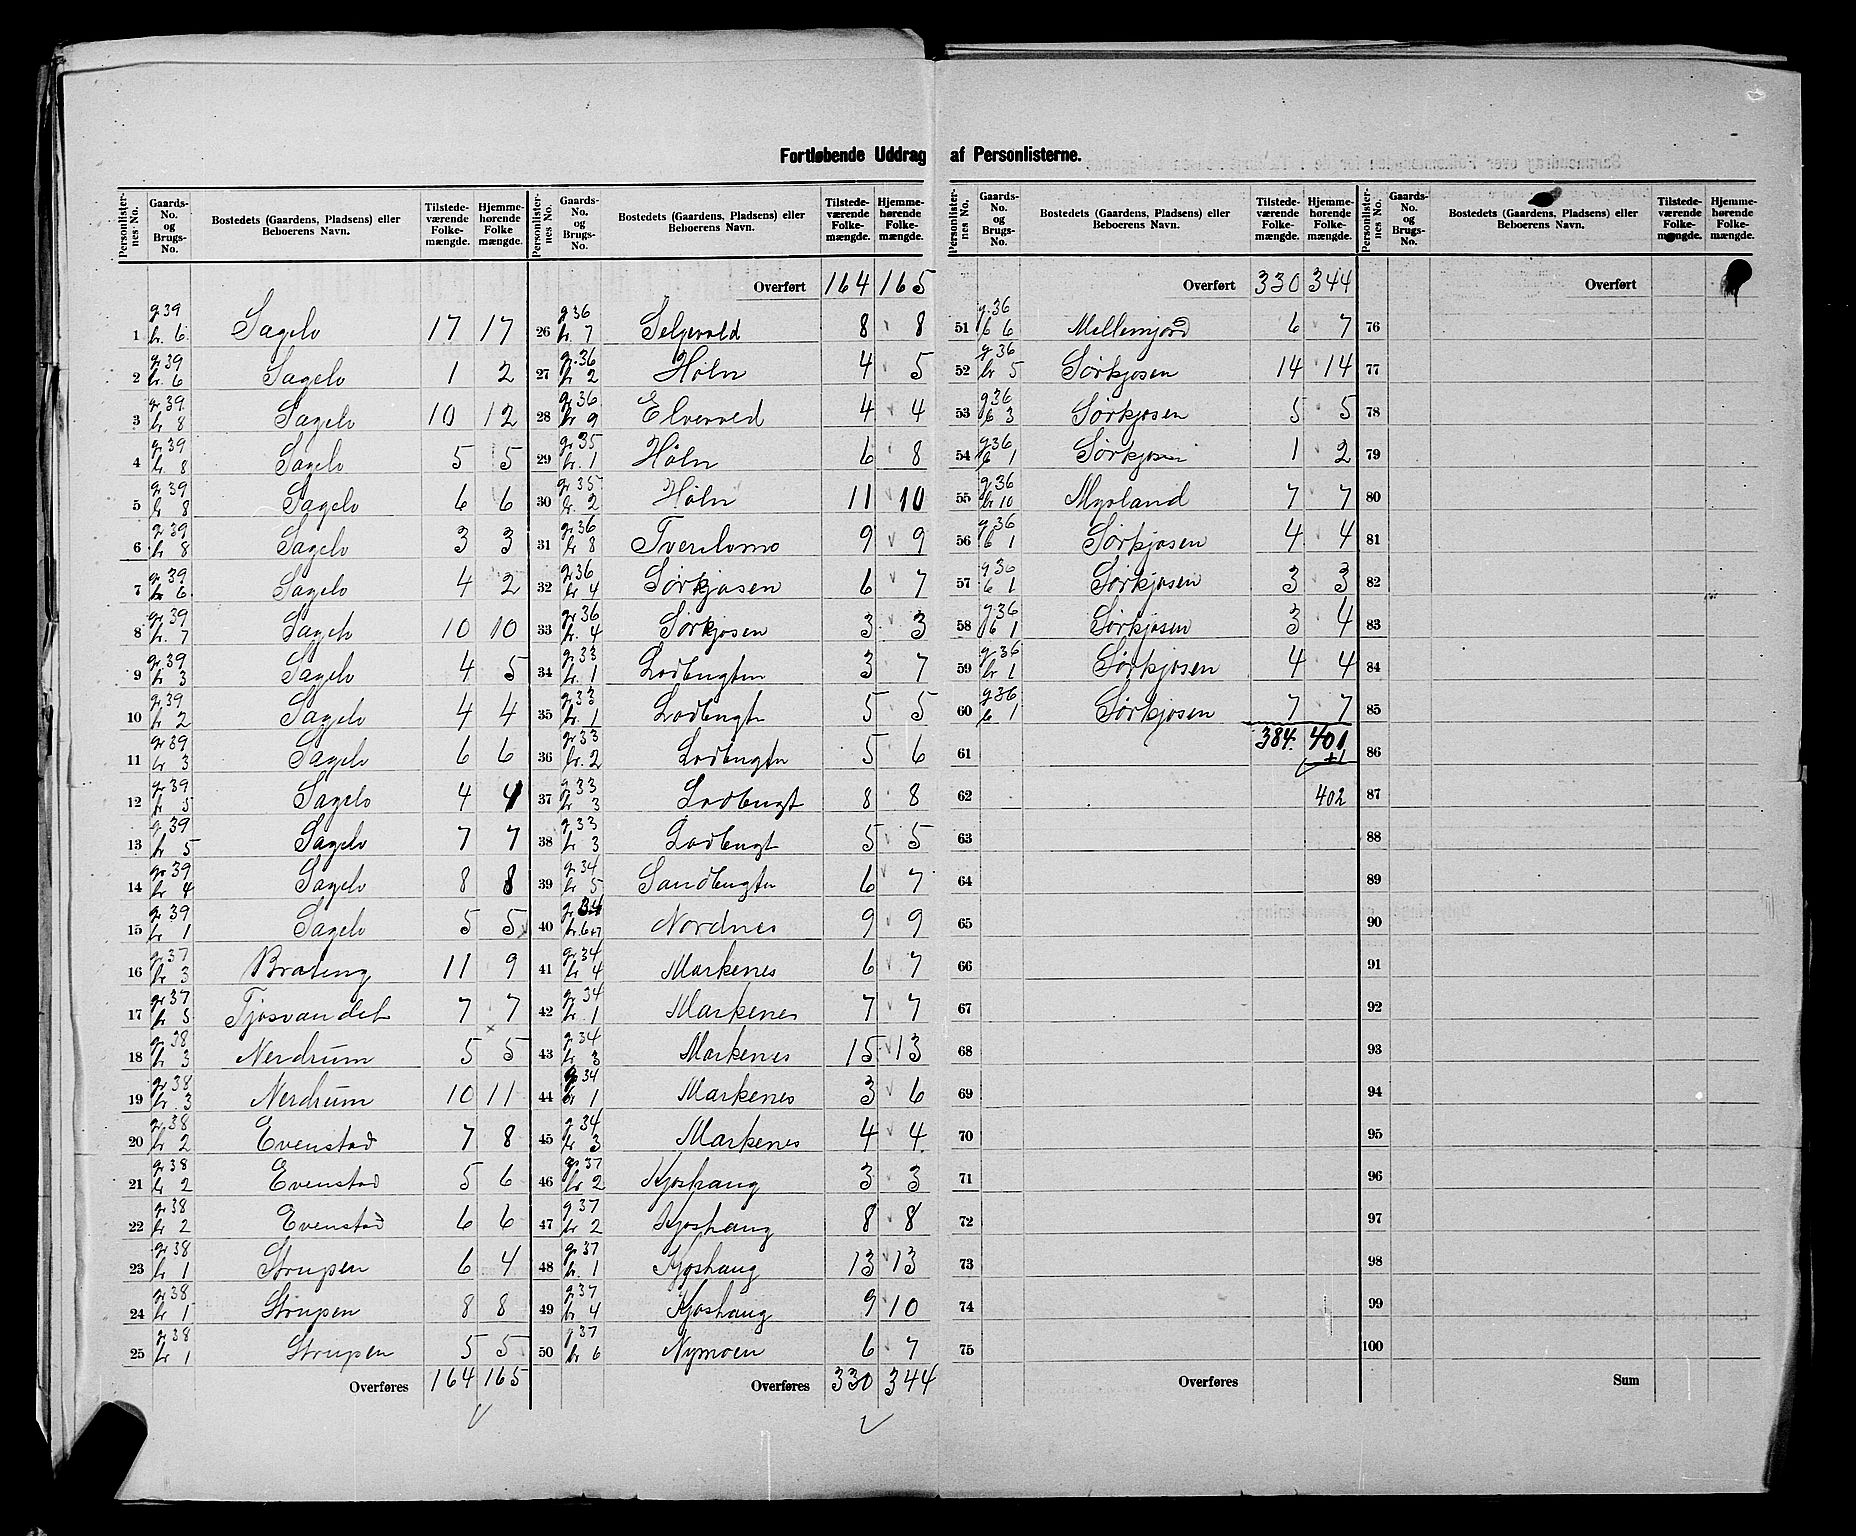 Fortløbende Uddrag af Personlisterne.
Personlisternes No. | Gaards-No. og Brugs-No. | Bostedets (Gaardens, Pladsens) eller Beboerens Navn. | Tilstedeværende Folkemængde. | Hjemmehørende Folkemængde.
1 g 39 br. 6 Sagelv 17 17
2 gr 39 br. 6 Sagelv 1 2
3 gr 39 br 8 Sagelv 10 12
4 gr 39 br 8 Sagelv 5 5
5 gr 39 br 8 Sagelv 6 6
6 gr 39 br 8 Sagelv 3 3
7 gr 39 br 6 Sagelv 4 2
8 gr 39 br. 7 Sagelv 10 10
9 gr 39 br 3 Sagelv 4 5
10 gr 39 br 2 Sagelv 4 4
11 gr 39 br 3 Sagelv 6 6
12 gr 39 br 5 Sagelv 4 4
13 gr 39 br 5 Sagelv 7 7
14 gr 39 br 4 Sagelv 8 8
15 gr 39 br 1 Sagelv 5 5
16 gr 37 br 3 Brateng 11 9
17 gr 37 br 5 Tjosvandet 7 7
18 gr 38 br 3 Nerdrum 5 5
19 gr 38 br. 3 Nerdrum 10 11
20 gr 38 br 2 Evenstad 7 8
21 gr 38 br 2 Evenstad 5 6
22 gr 38 br 2 Evenstad 6 6
23 gr 38 br 1 Strupen 6 4
24 gr 38 br 1 Strupen 8 8
25 gr 38 br 1 Strupen 5 5
Overføres 164 165
Personlisternes No. | Gaards-No. og Brugs-No. | Bostedets (Gaardens, Pladsens) eller Beboerens Navn. | Tilstedeværende Folkemængde. | Hjemmehørende Folkemængde.
Overført 164 165
26 g 36 br. 7 Selgevold 8 8
27 gr. 36 br 2 Höln 4 5
28 gr 36 br 9 Elvevold 4 4
29 gr 35 br. 1 Höln 6 8
30 gr 35 br. 2 Höln 11 10
31 gr 36 br 8 Tverelvmo 9 9
32 gr 36 br 4 Sørkjosen 6 7
33 gr 36 br. 4 Sørkjosen 3 3
34 gr 33 br. 1 Lodbugten 3 7
35 gr 33 br. 1 Lodbugt 5 5
36 gr 33 br. 2 Lodbugten 5 6
37 g 33 br 3 Lodbugt 8 8
38 g 33 br 3 Lodbugt 5 5
39 g 34 br 5 Sandbugten 6 7
40 gr 34 br 6+7 Nordnes 9 9
41 gr 34 br 4 Markenes 6 7
42 gr 34 br. 1 Markenes 7 7
43 g 34 br 3 Markenes 15 13
44 gr 34 br 1 Markenes 3 6
45 g 34 br 3 Markenes 4 4
46 gr 37 br 2 Kjoshaug 3 3
47 g 37 br 2 Kjoshaug 8 8
48 gr 37 br. 1 Kjoshaug 13 13
49 gr 37 br 4 Kjoshaug 9 10
50 gr 37 br 6 Nymoen 6 7
Overføres 330 344
Personlisternes No. | Gaards-No. og Brugs-No. | Bostedets (Gaardens, Pladsens) eller Beboerens Navn. | Tilstedeværende Folkemængde. | Hjemmehørende Folkemængde.
Overført 330 344
51 g. 36 b 6 Mellemjord 6 7
52 g 36 br 5 Sørkjosen 14 14
53 g 36 b 3 Sørkjosen 5 5
54 g 36 b 1 Sørkjosen 1 2
55 g 36 br 10 Myrland 7 7
56 g 36 b 1 Sørkjosen 4 4
57 g 36 b 1 Sørkjosen 3 3
58 g 36 b 1 Sørkjosen 3 4
59 g 36 br 1 Sørkjosen 4 4
60 g 36 b 1 Sørkjosen 7 7
61 384. 401
+1
62 402
63
64
65
66
67
68
69
70
71
72
73
74
75
Overføres
Personlisternes No. | Gaards-No. og Brugs-No. | Bostedets (Gaardens, Pladsens) eller Beboerens Navn. | Tilstedeværende Folkemængde. | Hjemmehørende Folkemængde.
Overført
76
77
78
79
80
81
82
83
84
85
86
87
88
89
90
91
92
93
94
95
96
97
98
99
100
Sum